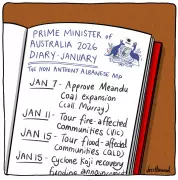 PRIME MINISTER OF
AUSTRALIA 2026
DIARY: JANUARY
THE HON ANTHONY ALBANESE MP
JAN 7 - Approve Meandu
Coal expansion
(call Murray)
JAN 11 - Tour fire-affected
Communities (VIC)
JAN 15 - Tour flood-affected
Communities (QLD)
JAN 15 - Cyclone Koji recovery
funding announcement